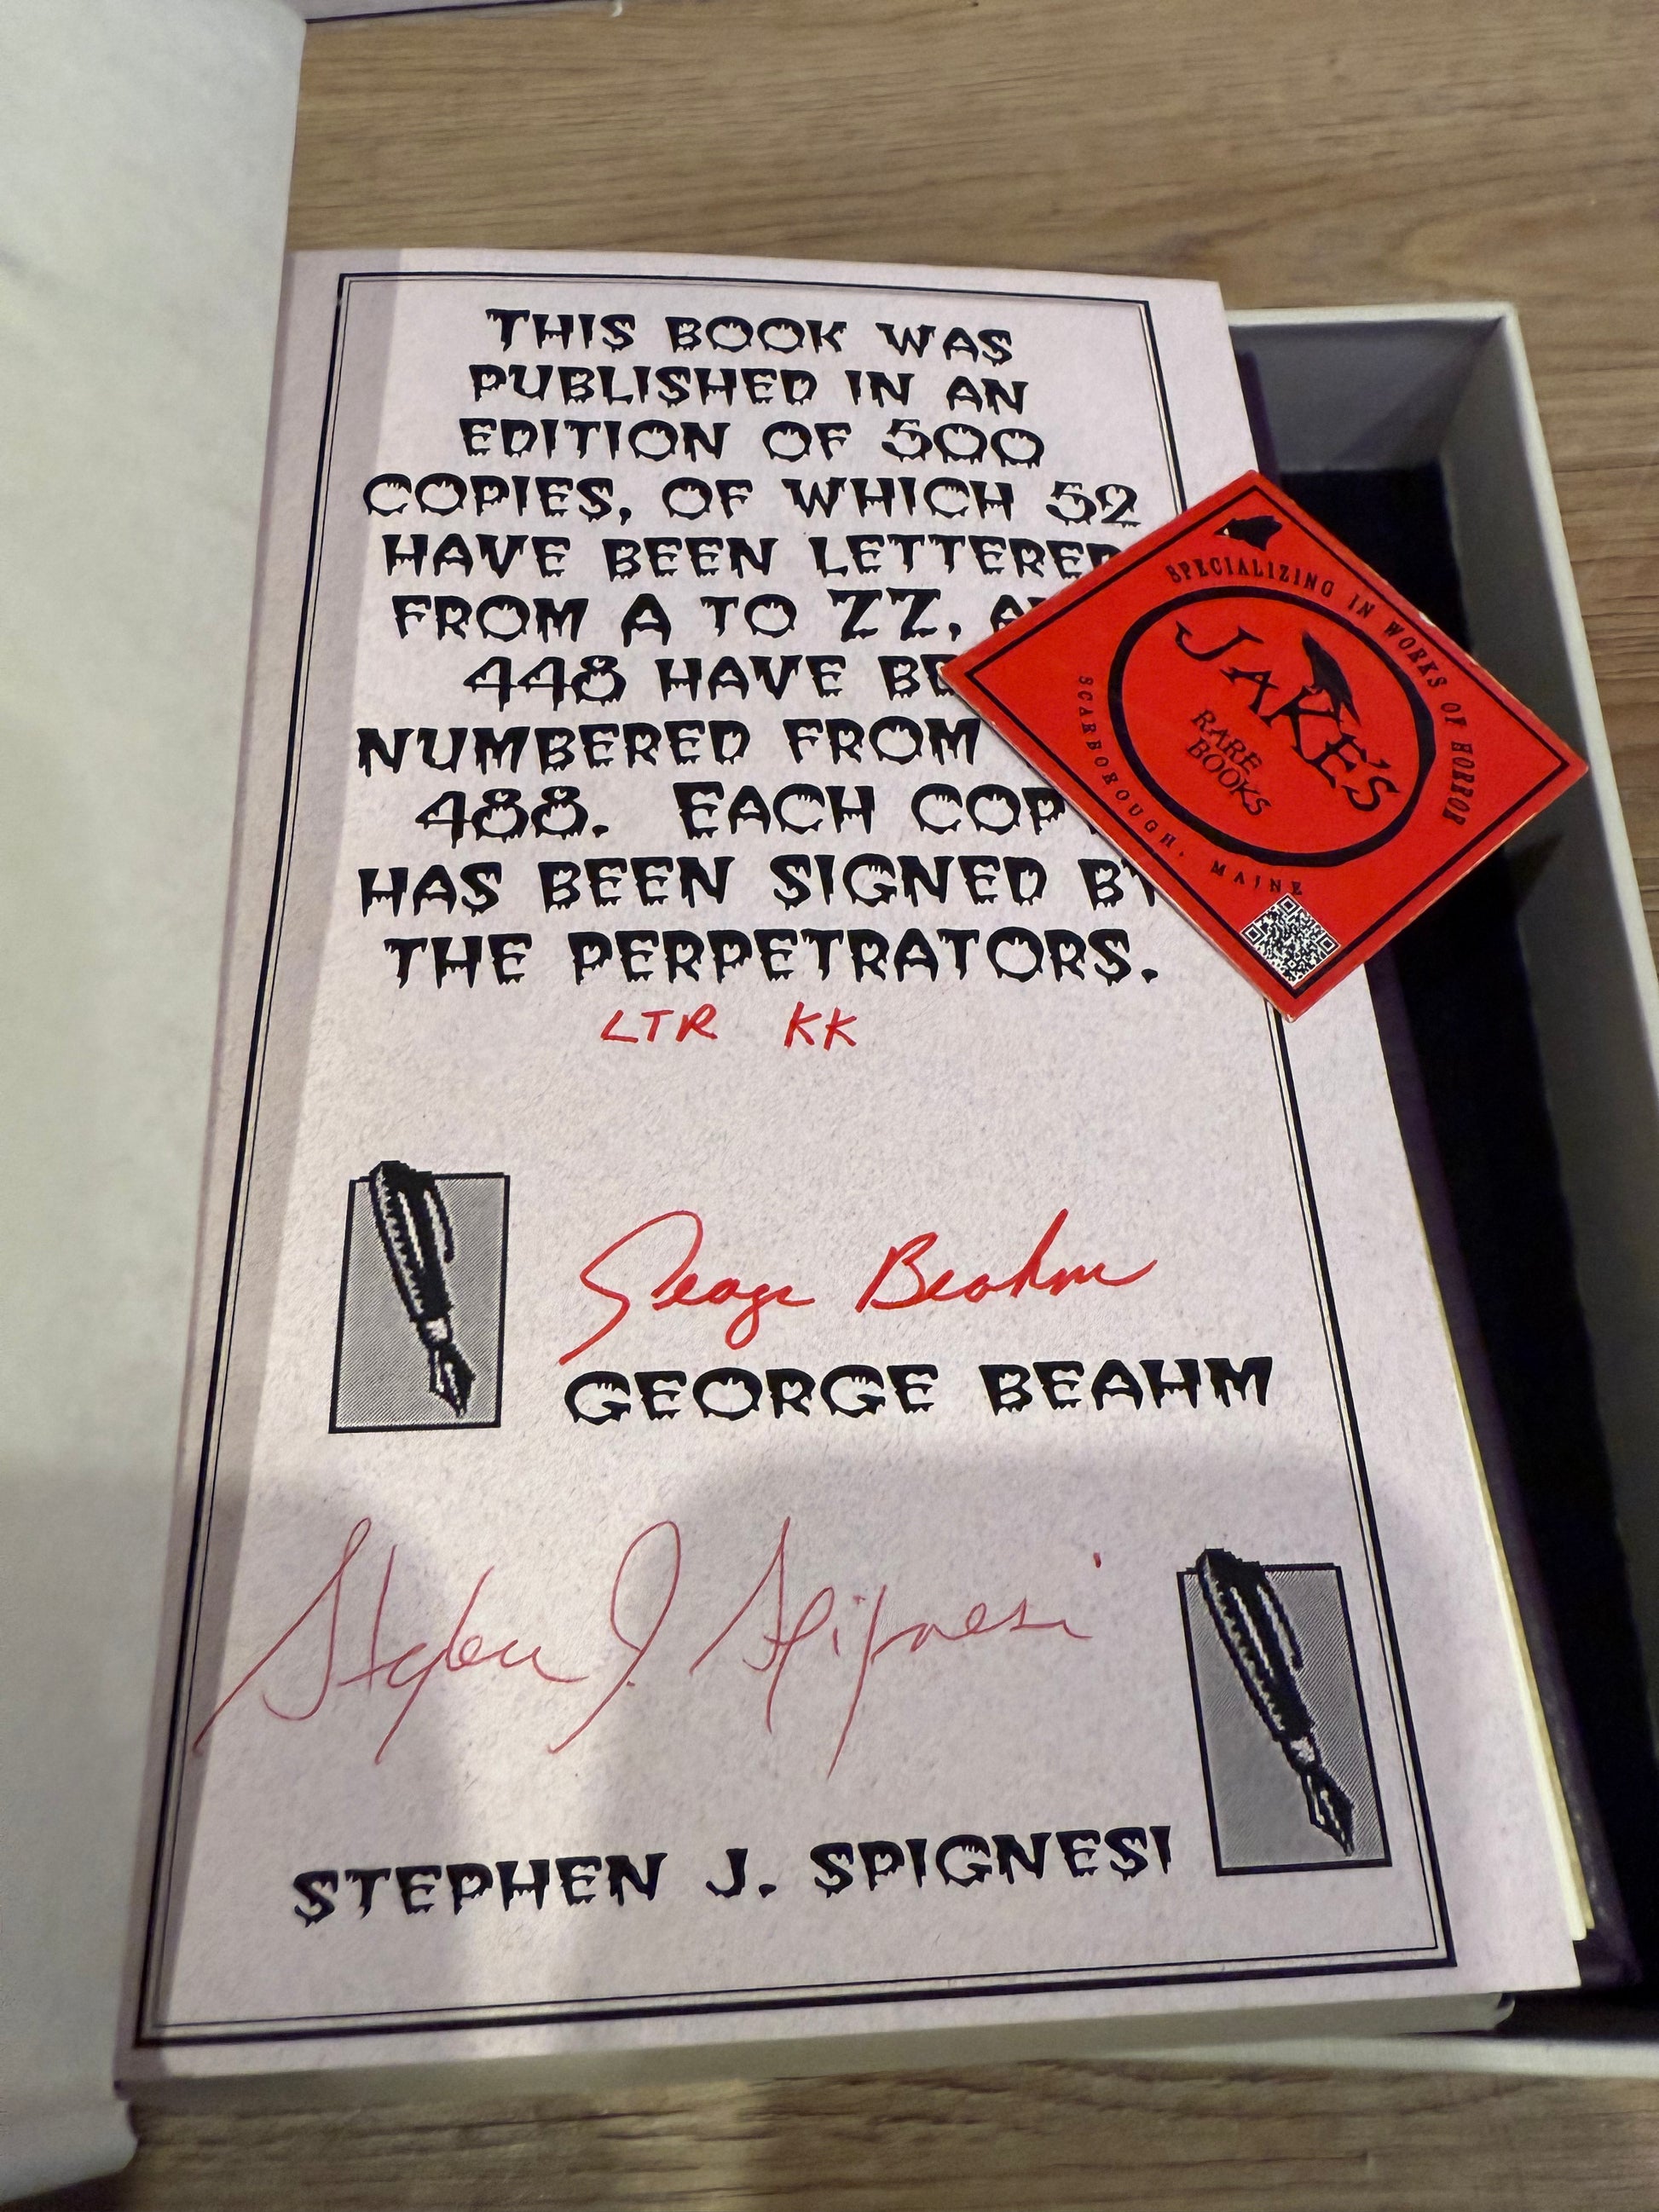 THIS BOOK WAS
PUBLISHED IN AN
EDITION OF 500
COPIES, OF WHICH 52
HAVE BEEN LETTERED
FROM A TO ZZ,
448 HAVE
NUMBERED FROM
488. EACH COPY
HAS BEEN SIGNED BY
THE PERPETRATORS.
LTR KK
George Beahm
GEORGE BEAHM
Stephen J. Spignesi
STEPHEN J. SPIGNESI
SPECIALIZING IN WORKS OF HORROR
JAKE'S
RARE
BOOKS
SCARBOROUGH, MAINE